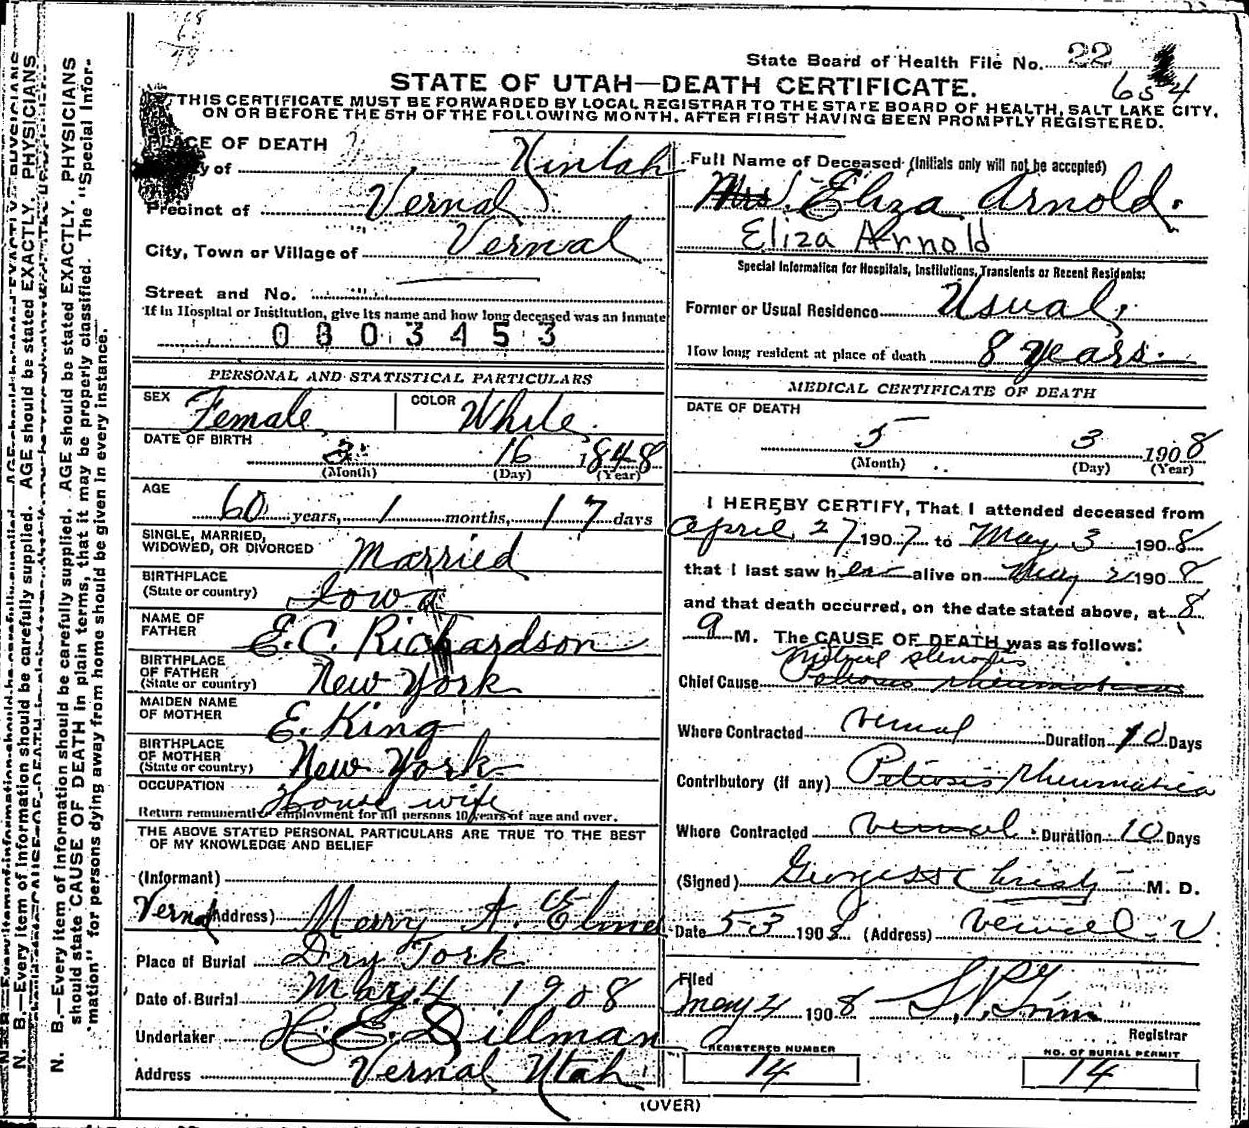 State Board of Health File No. 22
654
STATE OF UTAH—DEATH CERTIFICATE.
THIS CERTIFICATE MUST BE FORWARDED BY LOCAL REGISTRAR TO THE STATE BOARD OF HEALTH, SALT LAKE CITY,
ON OR BEFORE THE 5TH OF THE FOLLOWING MONTH, AFTER FIRST HAVING BEEN PROMPTLY REGISTERED.
PLACE OF DEATH
of Uintah
Precinct of Vernal
City, Town or Village of Vernal
Street and No.
If in Hospital or Institution, give its name and how long deceased was an Inmate
0803453
PERSONAL AND STATISTICAL PARTICULARS
SEX Female COLOR White
DATE OF BIRTH 3 16 1848
(Month) (Day) (Year)
AGE 60 years, 1 months, 17 days
SINGLE, MARRIED,
WIDOWED, OR DIVORCED Married
BIRTHPLACE
(State or country) Iowa
NAME OF
FATHER E. C. Richardson
BIRTHPLACE
OF FATHER
(State or country) New York
MAIDEN NAME
OF MOTHER E. King
BIRTHPLACE
OF MOTHER
(State or country) New York
OCCUPATION House wife
Return remunerative employment for all persons 10 years of age and over.
THE ABOVE STATED PERSONAL PARTICULARS ARE TRUE TO THE BEST
OF MY KNOWLEDGE AND BELIEF
(Informant)
Vernal (Address) A.
Place of Burial Dry Fork
Date of Burial May 4 1908
Undertaker Dillman
Address Vernal Utah
Full Name of Deceased (Initials only will not be accepted)
Mrs. Eliza Arnold.
Eliza Arnold
Special Information for Hospitals, Institutions, Transients or Recent Residents:
Former or Usual Residence Usual
How long resident at place of death 8 years.
MEDICAL CERTIFICATE OF DEATH
DATE OF DEATH
5 3 1908
(Month) (Day) (Year)
I HEREBY CERTIFY, That I attended deceased from
April 27 1907 to May 3 1908
that I last saw her alive on May 2 1908
and that death occurred, on the date stated above, at 8
a M. The CAUSE OF DEATH was as follows:
Mitral stenosis
Chief Cause Peliosis rheumatica
Where Contracted Vernal Duration 10 Days
Contributory (if any) Peliosis rheumatica
Where Contracted Vernal Duration 10 Days
(Signed) M. D.
Date 5-3 1908 (Address) Vernal U
Filed
May 4 1908
Registrar
REGISTERED NUMBER
14
NO. OF BURIAL PERMIT
14
(OVER)
N. B.—Every item of information should be carefully supplied. AGE should be stated EXACTLY. PHYSICIANS
should state CAUSE OF DEATH in plain terms, that it may be properly classified. The "Special Infor-
mation" for persons dying away from home should be given in every instance.